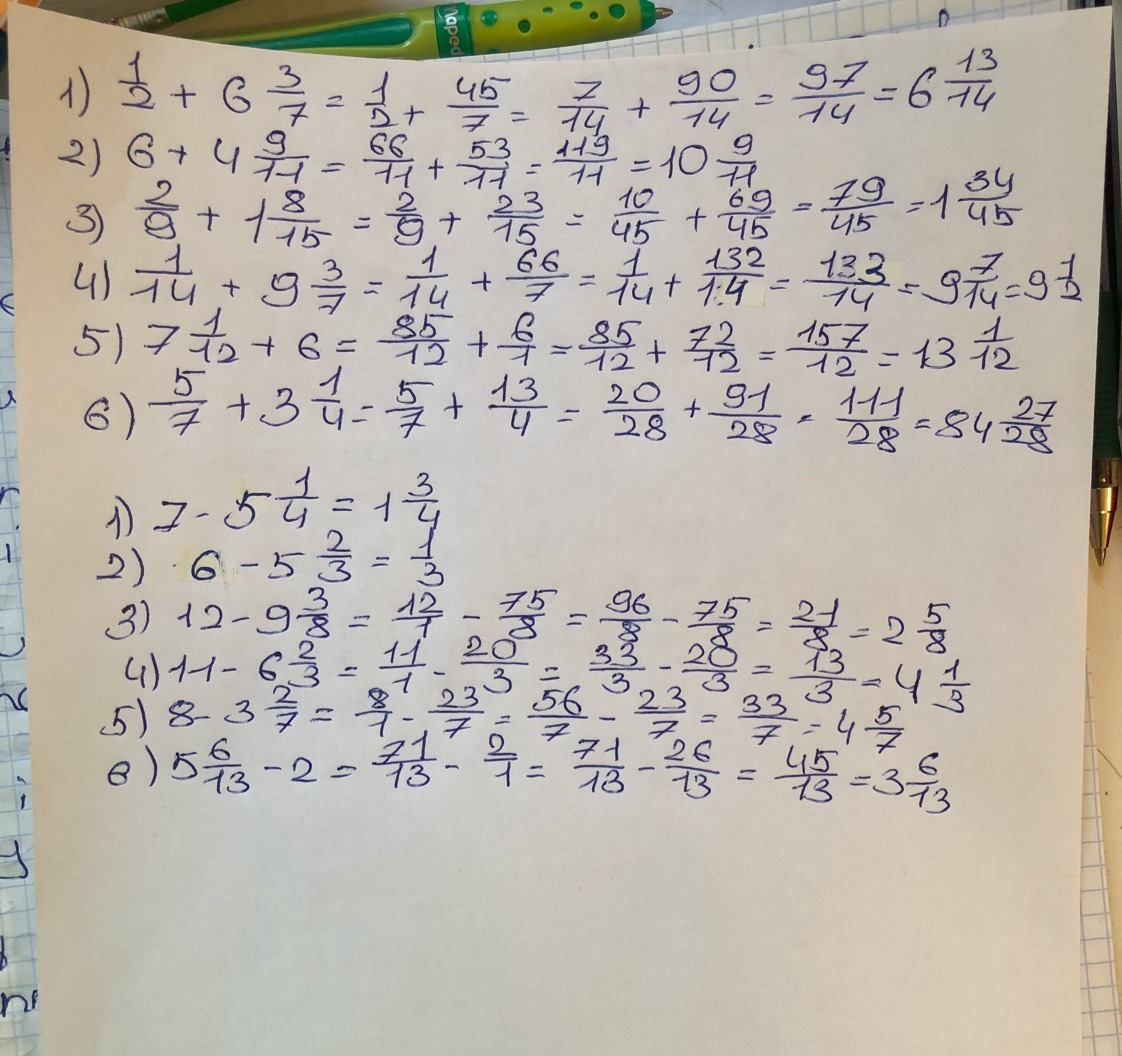 Maped
1) 1/2 + 6 3/7 = 1/2 + 45/7 = 7/14 + 90/14 = 97/14 = 6 13/14
2) 6 + 4 9/11 = 66/11 + 53/11 = 119/11 = 10 9/11
3) 2/9 + 1 8/15 = 2/9 + 23/15 = 10/45 + 69/45 = 79/45 = 1 34/45
4) 1/14 + 9 3/7 = 1/14 + 66/7 = 1/14 + 132/14 = 133/14 = 9 7/14 = 9 1/2
5) 7 1/12 + 6 = 85/12 + 6/1 = 85/12 + 72/12 = 157/12 = 13 1/12
6) 5/7 + 3 1/4 = 5/7 + 13/4 = 20/28 + 91/28 = 111/28 = 84 27/28
1) 7 - 5 1/4 = 1 3/4
2) 6 - 5 2/3 = 1/3
3) 12 - 9 3/8 = 12/1 - 75/8 = 96/8 - 75/8 = 21/8 = 2 5/8
4) 11 - 6 2/3 = 11/1 - 20/3 = 33/3 - 20/3 = 13/3 = 4 1/3
5) 8 - 3 2/7 = 8/1 - 23/7 = 56/7 - 23/7 = 33/7 = 4 5/7
6) 5 6/13 - 2 = 71/13 - 2/1 = 71/13 - 26/13 = 45/13 = 3 6/13